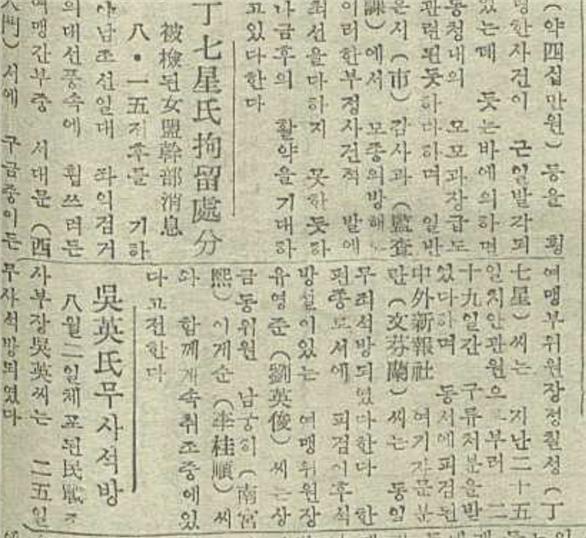 (약四십만원) 등을 횡
령한사건이 근일발각되
있는데 듯는바에의하면
동청내의 모모과장급도
관련된듯하다하며 일반
은시(市)감사과(監査
課)에서 모종의방해로
이러한부정사건적 발에
최선을다하지 못한듯하
나금후의 활약을기대하
고있다한다
丁七星氏拘留處分
被檢된女盟幹部消息
八・一五전후를 기하
야남조선일대 좌익검거
의대선풍속에 휩쓰러든
여맹간부중 서대문(西
大門)서에 구금중이든
여맹부위원장정칠성(丁
七星)씨는 지난二十五
일치안관원으로부러 二
十九일간 구류처분을받
었다하며 동서에피검된
中外新報社 여기자문분
란(文芬蘭)씨는 동일
무죄석방되였다한다 한
편종로서에 피검이후석
방설이있는 여맹위원장
유영준(劉英俊)씨는상
금동위원 남궁히(南宮
熙)이계순(李桂順)씨
와 함께계속취조중에있
다고전한다
吳英氏무사석방
八월二일체포된民戰조
사부장吳英씨는 二五일
무사석방되였다